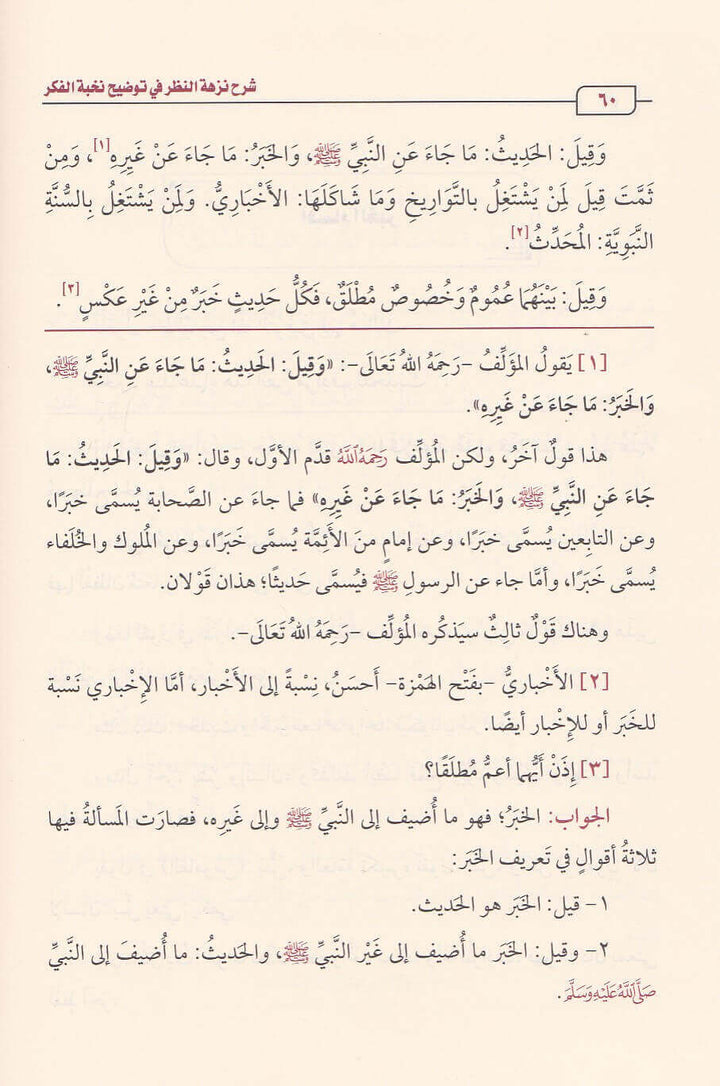 شرح نزهة النظر في توضيح نخبة الفكر
٦٠
وَقِيلَ: الحَدِيثُ: مَا جَاءَ عَنِ النَّبِيِّ ﷺ، وَالخَبَرُ: مَا جَاءَ عَنْ غَيِرِهِ[١]، وَمِنْ
ثَمَّتَ قِيلَ لِمَنْ يَشْتَغِلُ بالتَّوَارِيخِ وَمَا شَاكَلَهَا: الأَخْبَارِيُّ. وَلِمَنْ يَشْتَغِلُ بِالسُّنَّةِ
النَّبَوِيَّةِ: المُحَدِّثُ[٢].
وَقِيلَ: بَيْنَهُمَا عُمُومٌ وَخُصُوصٌ مُطْلَقٌ، فَكُلُّ حَدِيثٍ خَبَرٌ مِنْ غَيْرِ عَكْسٍ[٣].
[١] يَقولُ المؤَلِّفُ -رَحِمَهُ اللهُ تَعَالَى-: «وَقِيلَ: الحَدِيثُ: مَا جَاءَ عَنِ النَّبِيِّ ﷺ،
وَالخَبَرُ: مَا جَاءَ عَنْ غَيِرِهِ».
هذا قولٌ آخَرُ، ولكن المُؤلِّف رَحِمَهُ اللَّهُ قدَّم الأوَّل، وقال: «وَقِيلَ: الحَدِيثُ: مَا
جَاءَ عَنِ النَّبِيِّ ﷺ، وَالخَبَرُ: مَا جَاءَ عَنْ غَيْرِهِ» فما جاءَ عن الصَّحابة يُسمَّى خبَرًا،
وعن التابِعين يُسمَّى خبَرًا، وعن إمامٍ منَ الأَئِمَّة يُسمَّى خَبَرًا، وعن المُلوك والخُلَفاء
يُسمَّى خَبَرًا، وأمَّا جاء عن الرسولِ ﷺ فيُسمَّى حَديثًا؛ هذان قَوْلان.
وهناك قَوْلٌ ثالِثٌ سيَذكُره المُؤلِّف -رَحِمَهُ اللهُ تَعَالَى-.
[٢] الأَخْباريُّ -بفَتْح الهَمْزة- أَحسَنُ، نِسبةً إلى الأَخْبار، أمَّا الإِخْباري نَسْبة
للخَبَر أو للإِخْبار أيضًا.
[٣] إِذَنْ أَيُّهما أعمُّ مُطلَقًا؟
الجواب: الخبَرُ؛ فهو ما أُضيف إلى النَّبيِّ ﷺ وإلى غَيره، فصارَت المَسألةُ فيها
ثلاثةُ أقوالٍ في تَعريف الخَبَر:
١- قيل: الخَبَر هو الحَديث.
٢- وقيل: الخَبَر ما أُضيف إلى غَيْر النَّبيِّ ﷺ، والحَديثُ: ما أُضيفَ إلى النَّبيِّ
صَلَّى اللَّهُ عَلَيْهِ وَسَلَّمَ.